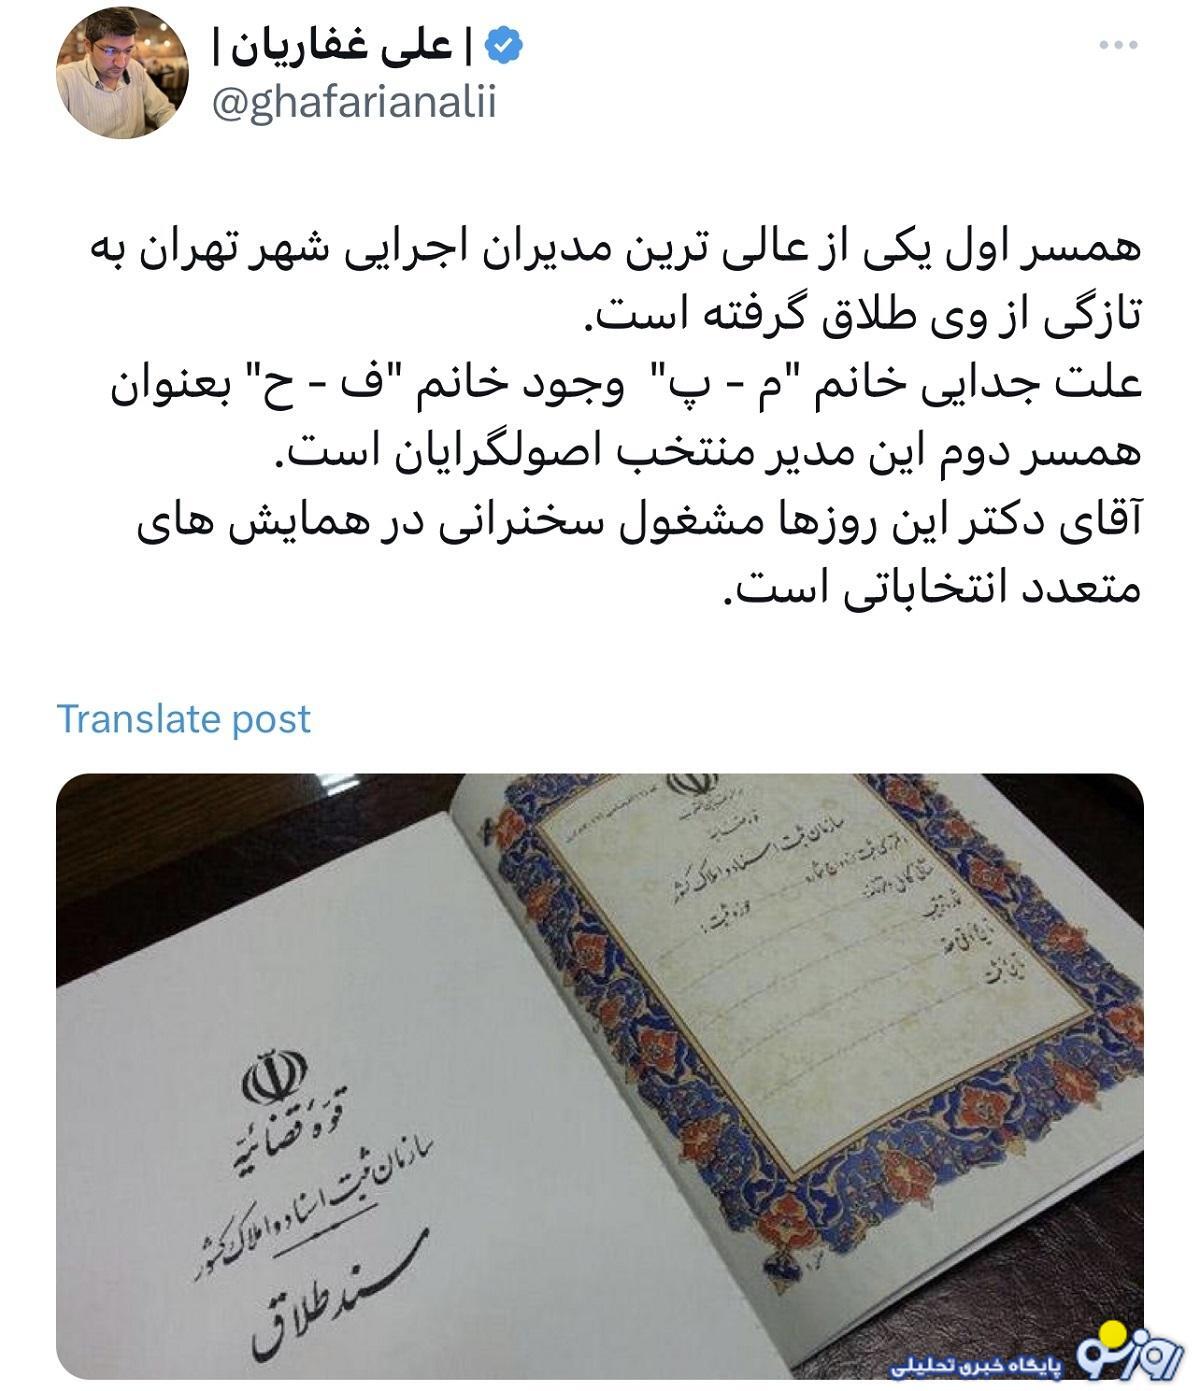 | علی غفاریان |
@ghafarianalii
همسر اول یکی از عالی ترین مدیران اجرایی شهر تهران به
تازگی از وی طلاق گرفته است.
علت جدایی خانم "م - پ" وجود خانم "ف - ح" بعنوان
همسر دوم این مدیر منتخب اصولگرایان است.
آقای دکتر این روزها مشغول سخنرانی در همایش های
متعدد انتخاباتی است.
Translate post
قوه قضائیه
سازمان ثبت اسناد و املاک کشور
حوزه ثبت :
تاریخ ثبت
قوّه قضائیّه
سازمان ثبت اسناد و املاک کشور
سند طلاق
روز نو
پایگاه خبری تحلیلی